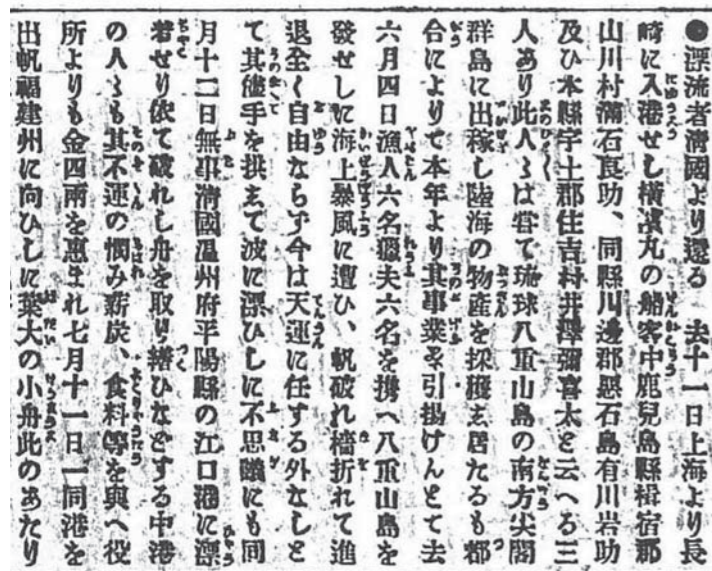 ●漂流者淸國より還る 去十一日上海より長
崎に入港せし橫濱丸の船客中鹿兒島縣揖宿郡
山川村瀰石良助、同縣川邊郡惡石島有川岩助
及ひ本縣宇土郡住吉村井澤彌喜太と云へる三
人あり此人〻は甞て琉球八重山島の南方尖閣
群島に出稼し陸海の物産を採獲し居たるも都
合によりて本年より其事業を引揚けんとて去
六月四日漁人六名獵夫六名を携へ八重山島を
發せしに海上暴風に遭ひ、帆破れ檣折れて進
退全く自由ならず今は天運に任する外なしと
て其儘手を拱きて波に漂ひしに不思議にも同
月十二日無事淸國温州府平陽縣の江口港に漂
着せり依て破れし舟を取り繕ひなどする中港
の人〻も其不運の憫み薪炭、食料等を與へ役
所よりも金四兩を惠まれ七月十一日一同港を
出帆福建州に向ひしに葉大の小舟此のあたり